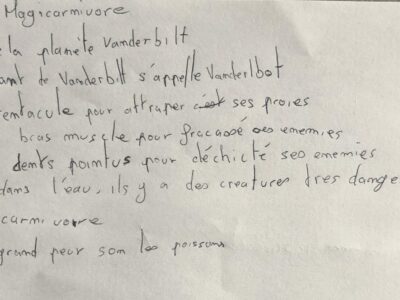 Magicarnivore
la planète Vanderbilt
ant de Vanderbilt s'appelle Vanderlbot
entacule pour attraper c'est ses proies
bras muscle pour fracassé ses enemies
dents pointus pour déchicté ses enemies
dans l'eau, ils y a des creatures tres dange
carnivore
grand peur son les poissons